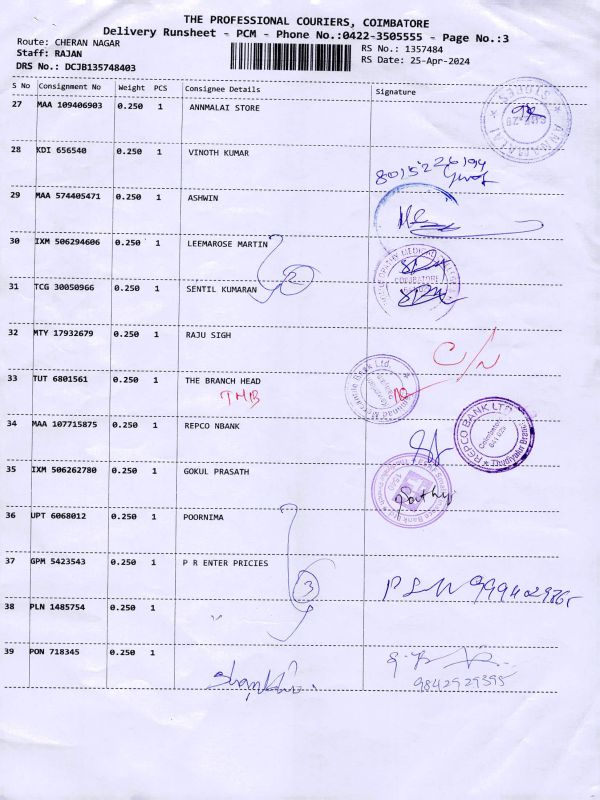 THE PROFESSIONAL COURIERS, COIMBATORE
Delivery Runsheet - PCM - Phone No.:0422-3505555 - Page No.:3
Route: CHERAN NAGAR
Staff: RAJAN
DRS No.: DCJB135748403
RS No.: 1357484
RS Date: 25-Apr-2024
S No Consignment No Weight PCS Consignee Details Signature
27 MAA 109406903 0.250 1 ANNMALAI STORE
28 KDI 656540 0.250 1 VINOTH KUMAR
8015226194
29 MAA 574405471 0.250 1 ASHWIN
30 IXM 506294606 0.250 1 LEEMAROSE MARTIN
2
31 TCG 30050966 0.250 1 SENTIL KUMARAN
COIMBATORE
32 MTY 17932679 0.250 1 RAJU SIGH
C/N
33 TUT 6801561 0.250 1 THE BRANCH HEAD
TMB
34 MAA 107715875 0.250 1 REPCO NBANK
REPCO BANK LTD.
Coimbatore
641 029
Thudiyalur Branch
35 IXM 506262780 0.250 1 GOKUL PRASATH
36 UPT 6068012 0.250 1 POORNIMA
37 GPM 5423543 0.250 1 P R ENTER PRICIES
3
38 PLN 1485754 0.250 1 "
39 PON 718345 0.250 1
9842929395